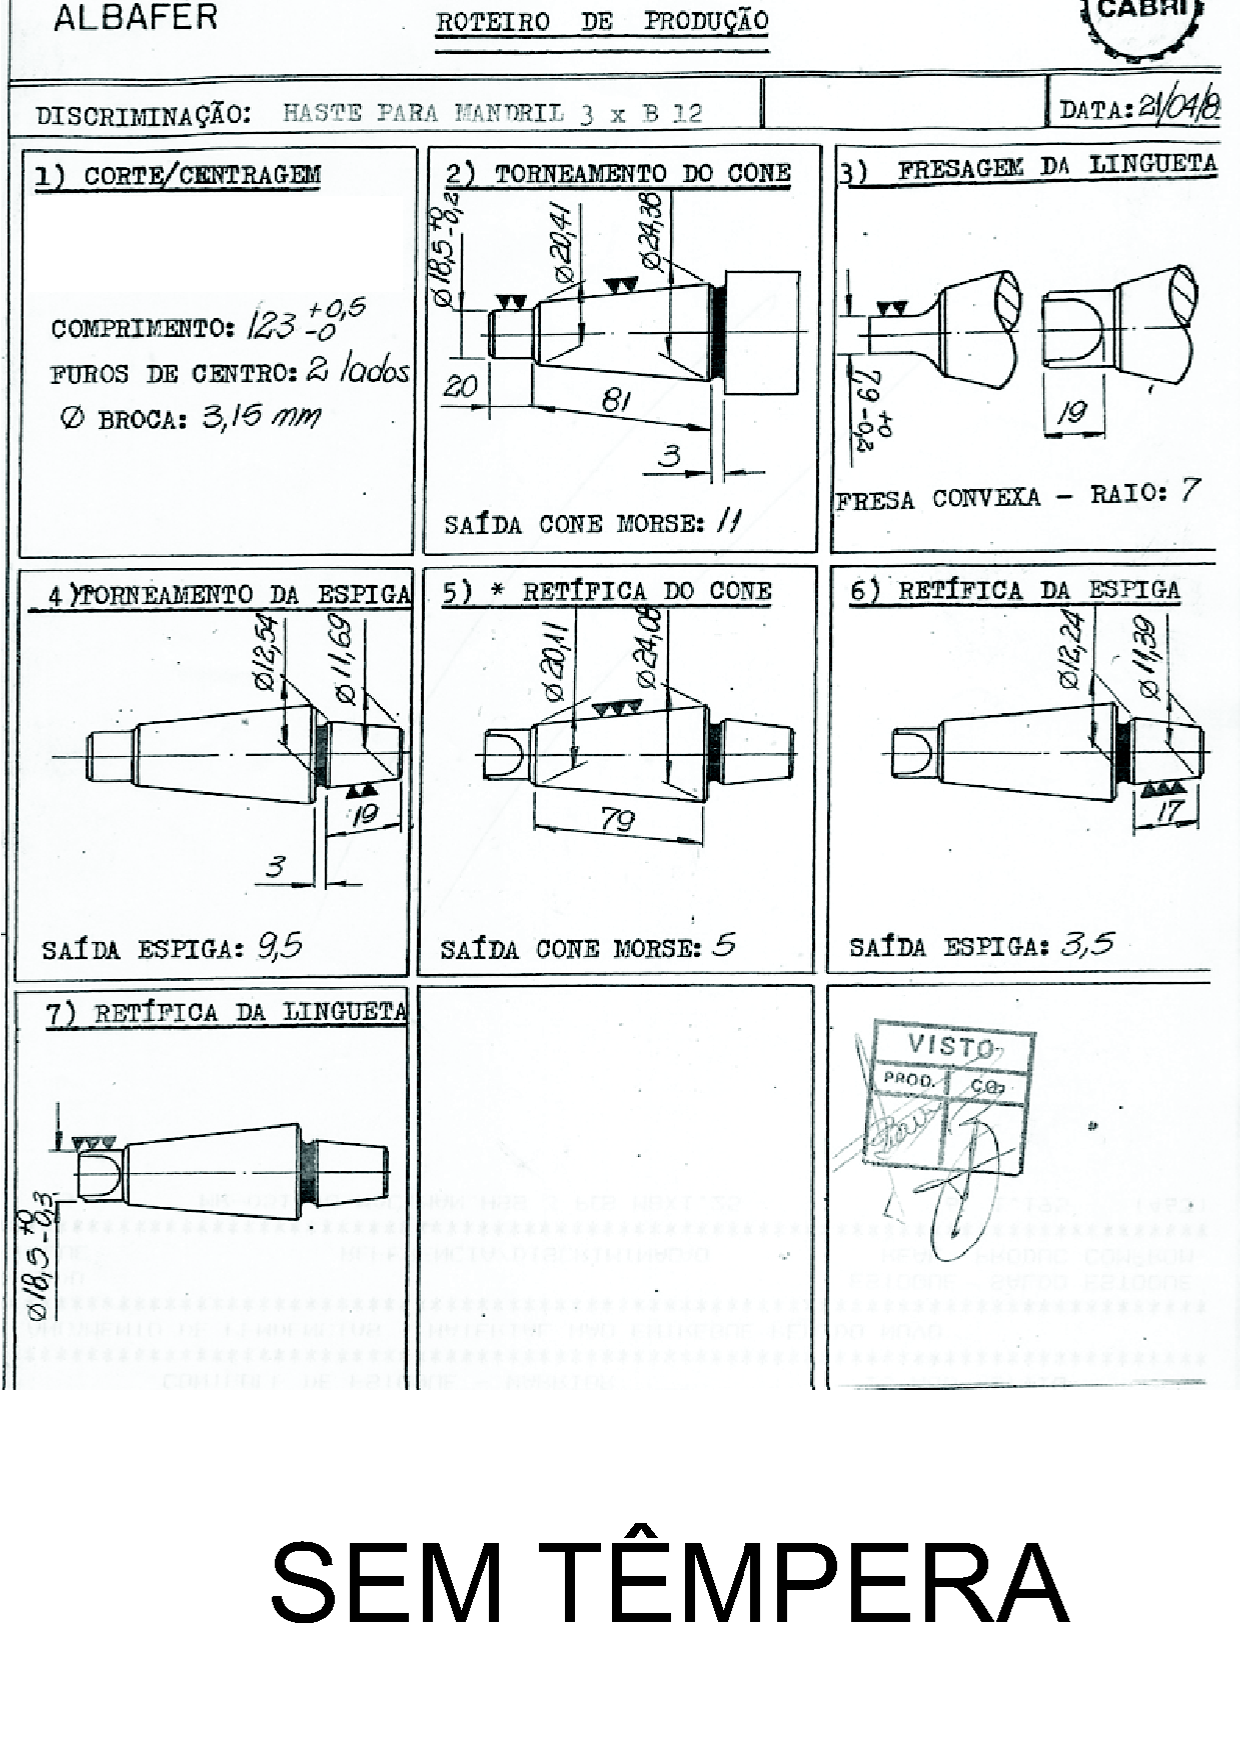 ALBAFER
ROTEIRO DE PRODUÇÃO
CABRI
DISCRIMINAÇÃO: HASTE PARA MANDRIL 3 x B 12
DATA: 21/04/8
1) CORTE/CENTRAGEM
COMPRIMENTO: 123 +0,5 -0
FUROS DE CENTRO: 2 lados
Ø BROCA: 3,15 mm
2) TORNEAMENTO DO CONE
Ø18,5 +0 -0,2
Ø20,41
Ø24,38
20
81
3
SAÍDA CONE MORSE: 11
3) FRESAGEM DA LINGUETA
7,9 +0 -0,2
19
FRESA CONVEXA - RAIO: 7
4) TORNEAMENTO DA ESPIGA
Ø12,54
Ø11,69
19
3
SAÍDA ESPIGA: 9,5
5) * RETÍFICA DO CONE
Ø20,11
Ø24,08
79
SAÍDA CONE MORSE: 5
6) RETÍFICA DA ESPIGA
Ø12,24
Ø11,39
17
SAÍDA ESPIGA: 3,5
7) RETÍFICA DA LINGUETA
Ø18,5 +0 -0,3
VISTO
PROD. C.Q.
SEM TÊMPERA